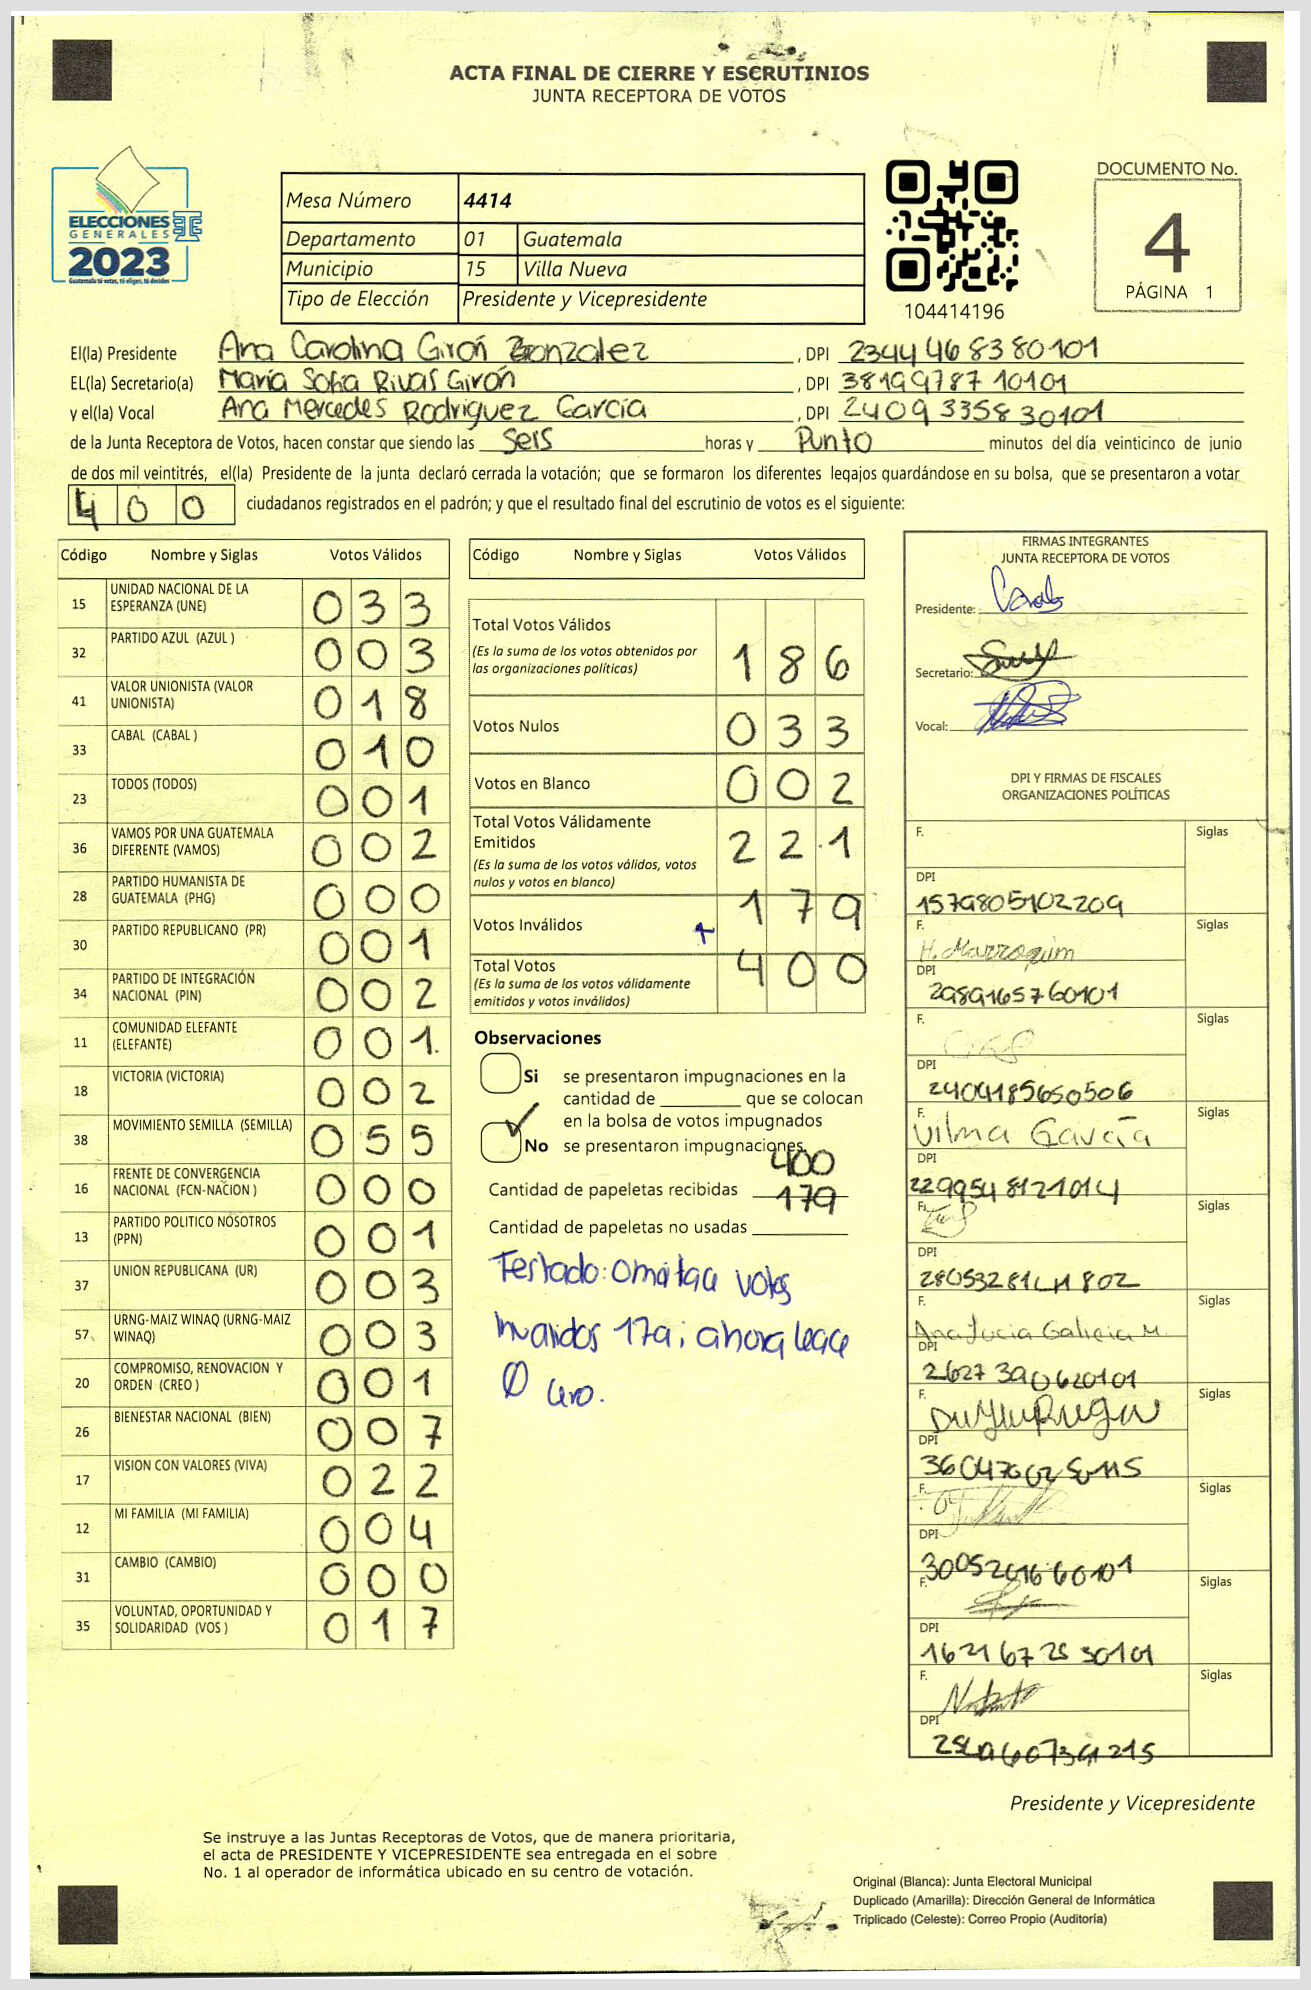 ACTA FINAL DE CIERRE Y ESCRUTINIOS
JUNTA RECEPTORA DE VOTOS
ELECCIONES
GENERALES
2023
Guatemala tú votas, tú eliges, tú decides
Mesa Número 4414
Departamento 01 Guatemala
Municipio 15 Villa Nueva
Tipo de Elección Presidente y Vicepresidente
104414196
DOCUMENTO No.
4
PÁGINA 1
El(la) Presidente Ana Carolina Girón Gonzalez, DPI 2344468380101
EL(la) Secretario(a) María Sofia Rivas Girón, DPI 3819978710101
y el(la) Vocal Ana Mercedes Rodriguez García, DPI 2409335830101
de la Junta Receptora de Votos, hacen constar que siendo las Seis horas y Punto minutos del día veinticinco de junio
de dos mil veintitrés, el(la) Presidente de la junta declaró cerrada la votación; que se formaron los diferentes legajos guardándose en su bolsa, que se presentaron a votar
400 ciudadanos registrados en el padrón; y que el resultado final del escrutinio de votos es el siguiente:
Código Nombre y Siglas Votos Válidos
15 UNIDAD NACIONAL DE LA ESPERANZA (UNE) 033
32 PARTIDO AZUL (AZUL ) 003
41 VALOR UNIONISTA (VALOR UNIONISTA) 018
33 CABAL (CABAL ) 010
23 TODOS (TODOS) 001
36 VAMOS POR UNA GUATEMALA DIFERENTE (VAMOS) 002
28 PARTIDO HUMANISTA DE GUATEMALA (PHG) 000
30 PARTIDO REPUBLICANO (PR) 001
34 PARTIDO DE INTEGRACIÓN NACIONAL (PIN) 002
11 COMUNIDAD ELEFANTE (ELEFANTE) 001
18 VICTORIA (VICTORIA) 002
38 MOVIMIENTO SEMILLA (SEMILLA) 055
16 FRENTE DE CONVERGENCIA NACIONAL (FCN-NACION ) 000
13 PARTIDO POLITICO NOSOTROS (PPN) 001
37 UNION REPUBLICANA (UR) 003
57 URNG-MAIZ WINAQ (URNG-MAIZ WINAQ) 003
20 COMPROMISO, RENOVACION Y ORDEN (CREO ) 001
26 BIENESTAR NACIONAL (BIEN) 007
17 VISION CON VALORES (VIVA) 022
12 MI FAMILIA (MI FAMILIA) 004
31 CAMBIO (CAMBIO) 000
35 VOLUNTAD, OPORTUNIDAD Y SOLIDARIDAD (VOS ) 017
Código Nombre y Siglas Votos Válidos
Total Votos Válidos 186
(Es la suma de los votos obtenidos por
las organizaciones políticas)
Votos Nulos 033
Votos en Blanco 002
Total Votos Válidamente
Emitidos 221
(Es la suma de los votos válidos, votos
nulos y votos en blanco)
Votos Inválidos 179
Total Votos 400
(Es la suma de los votos válidamente
emitidos y votos inválidos)
Observaciones
Si se presentaron impugnaciones en la
cantidad de ________ que se colocan
en la bolsa de votos impugnados
No se presentaron impugnaciones
Cantidad de papeletas recibidas 400
Cantidad de papeletas no usadas 179
Testado: omítace votos
Invalidos 179; ahora leace
0 cero.
FIRMAS INTEGRANTES
JUNTA RECEPTORA DE VOTOS
Presidente:
Secretario:
Vocal:
DPI Y FIRMAS DE FISCALES
ORGANIZACIONES POLÍTICAS
F. Siglas
DPI
1579805102209
F. H. Marroquim Siglas
DPI
2989165760101
F. Siglas
DPI
2404185650506
F. Vilma García Siglas
DPI
2299548121014
F. Siglas
DPI
F. Ana Lucia Galicia M. Siglas
DPI
2627390620101
F. Siglas
DPI
F. Siglas
DPI
F. Siglas
DPI
1621672530101
F. Siglas
DPI
Presidente y Vicepresidente
Se instruye a las Juntas Receptoras de Votos, que de manera prioritaria,
el acta de PRESIDENTE Y VICEPRESIDENTE sea entregada en el sobre
No. 1 al operador de informática ubicado en su centro de votación.
Original (Blanca): Junta Electoral Municipal
Duplicado (Amarilla): Dirección General de Informática
Triplicado (Celeste): Correo Propio (Auditoría)